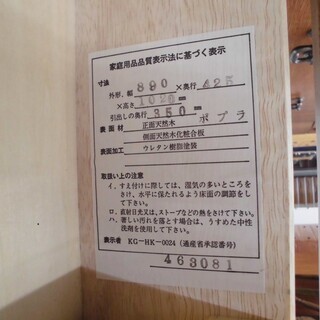 家庭用品品質表示法に基づく表示
寸法
外形、幅 890 ×奥行 425
×高さ 1020
引出しの奥行 350 ポプラ
表面材 正面天然木
側面天然木化粧合板
表面加工 ウレタン樹脂塗装
取扱い上の注意
イ、すえ付けに際しては、湿気の多いところをさけ、
水平に保たれるよう床面の調節をして下さい。
ロ、直射日光又は、ストーブなどの熱をさけて下さい。
ハ、著しい汚れを落とす場合は、うすめた中性
洗剤を使用して下さい。
表示者 KG-HK-0024(通産省承認番号)
463081